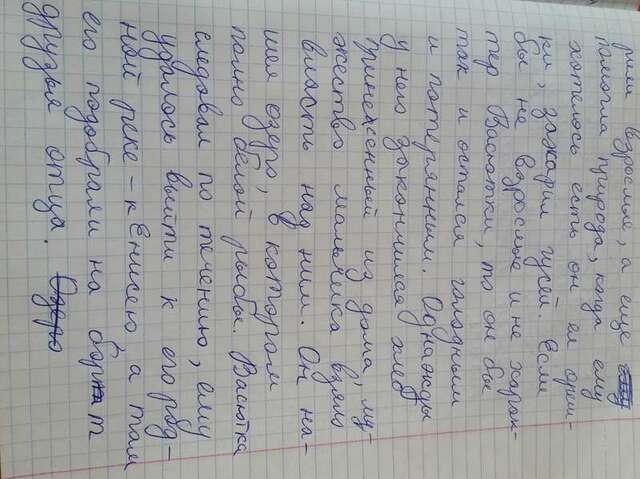 рили взрослые, а ещё
помогла природа, когда ему
хотелось есть он ел ореш-
ки, зажарил гуся. Если
бы не взрослые и не харак-
тер Васютки, то он бы
так и остался голодным
и потерянным. Однажды
у него закончился хлеб
принесенный из дома, му-
жество мальчика взяло
власть над ним. Он на-
шёл озеро, в котором
полно белой рыбы. Васютка
следовал по течению, ему
удалось выйти к его род-
ной реке - к Енисею, а там
его подобрали на борт
друзья отца. Озеро